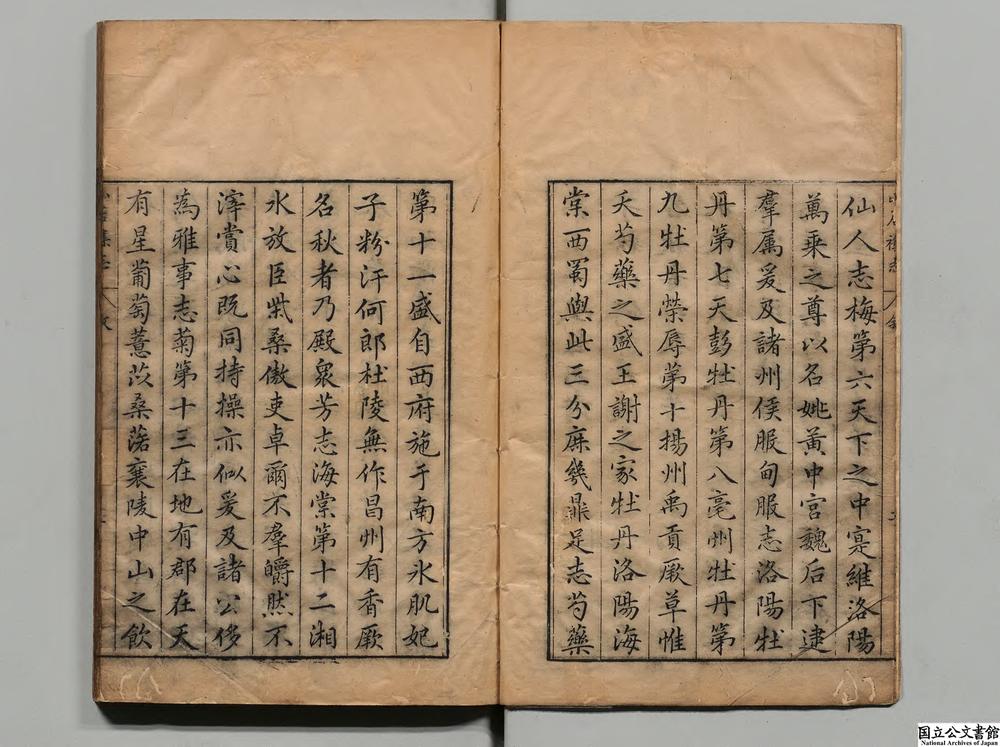 仙人志梅第六天下之中寔維洛陽
萬乘之尊以名姚黄中宫魏后下逮
羣属爰及諸州侯服甸服志洛陽牡
丹第七天彭牡丹第八亳州牡丹第
九牡丹榮辱第十揚州禹貢厥草惟
夭芍藥之盛王謝之家牡丹洛陽海
棠西蜀與此三分庶幾鼎足志芍藥
第十一盛自西府施于南方氷肌妃
子粉汗何郎杜陵無作昌州有香厥
名秋者乃殿衆芳志海棠第十二湘
水放臣柴桑傲吏卓爾不羣皭然不
滓賞心既同持操亦似爰及諸公侈
為雅事志菊第十三在地有郡在天
有星葡萄薏苡桑落襄陵中山之飲
国立公文書館
National Archives of Japan